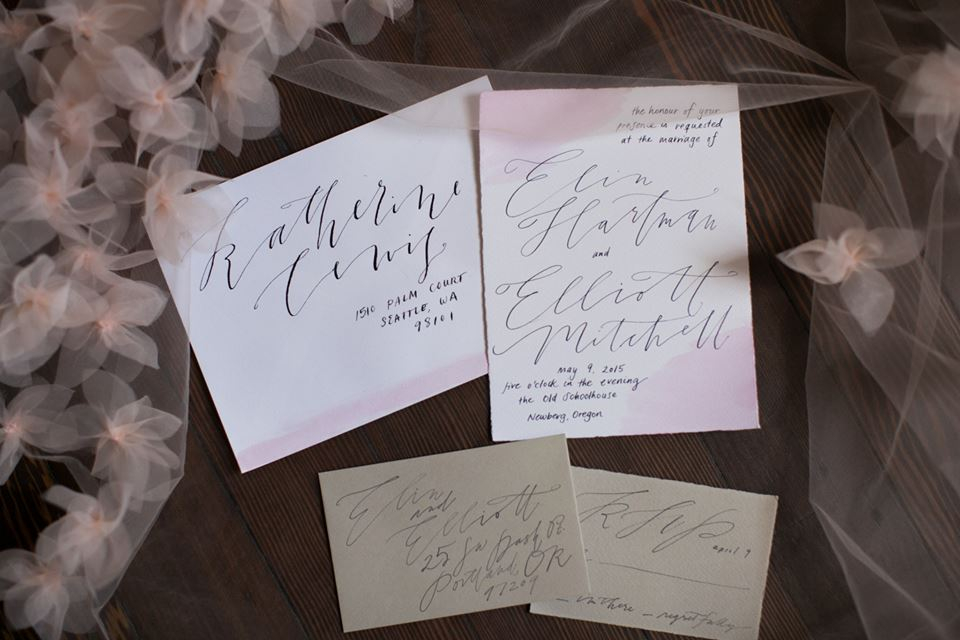 Katherine
Lewis
1510 PALM COURT
SEATTLE, WA
98101
the honour of your
presence is requested
at the marriage of
Elin
Hartman
and
Elliott
Mitchell
may 9, 2015
five o'clock in the evening
the Old Schoolhouse
Newberg, Oregon
Elin
and
Elliott
25 SW
Portland, OR
97209
RSVP
april 9
regretfully